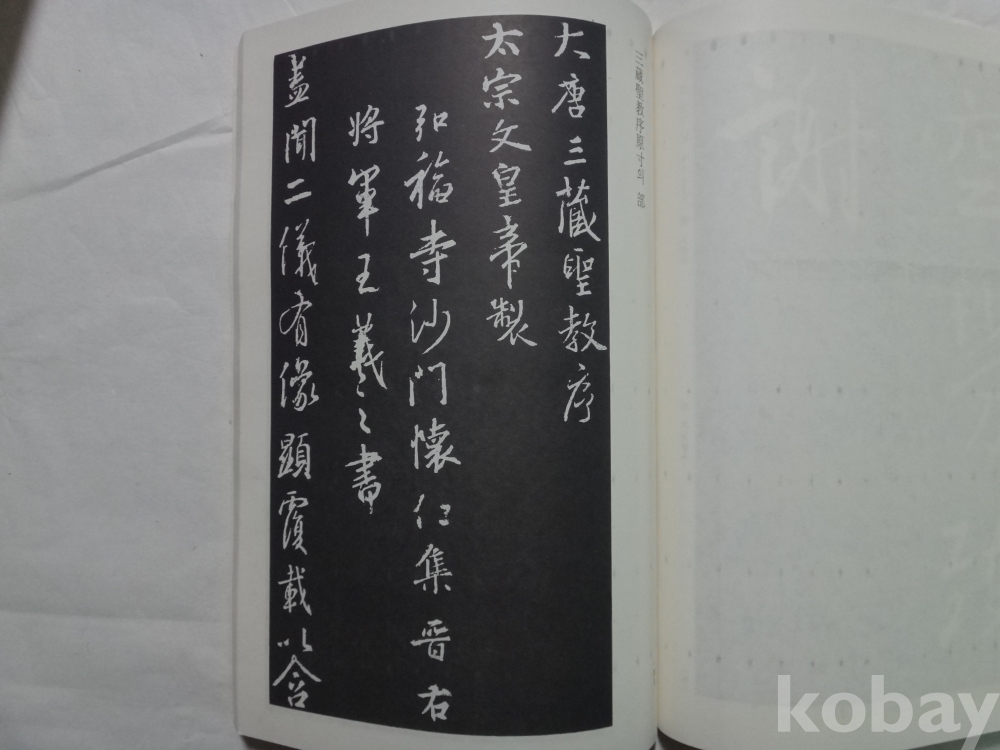 三藏聖教序原寸의 部
大唐三藏聖教序
太宗文皇帝製
弘福寺沙門懷仁集晉右
將軍王羲之書
蓋聞二儀有像顯覆載以含
kobay